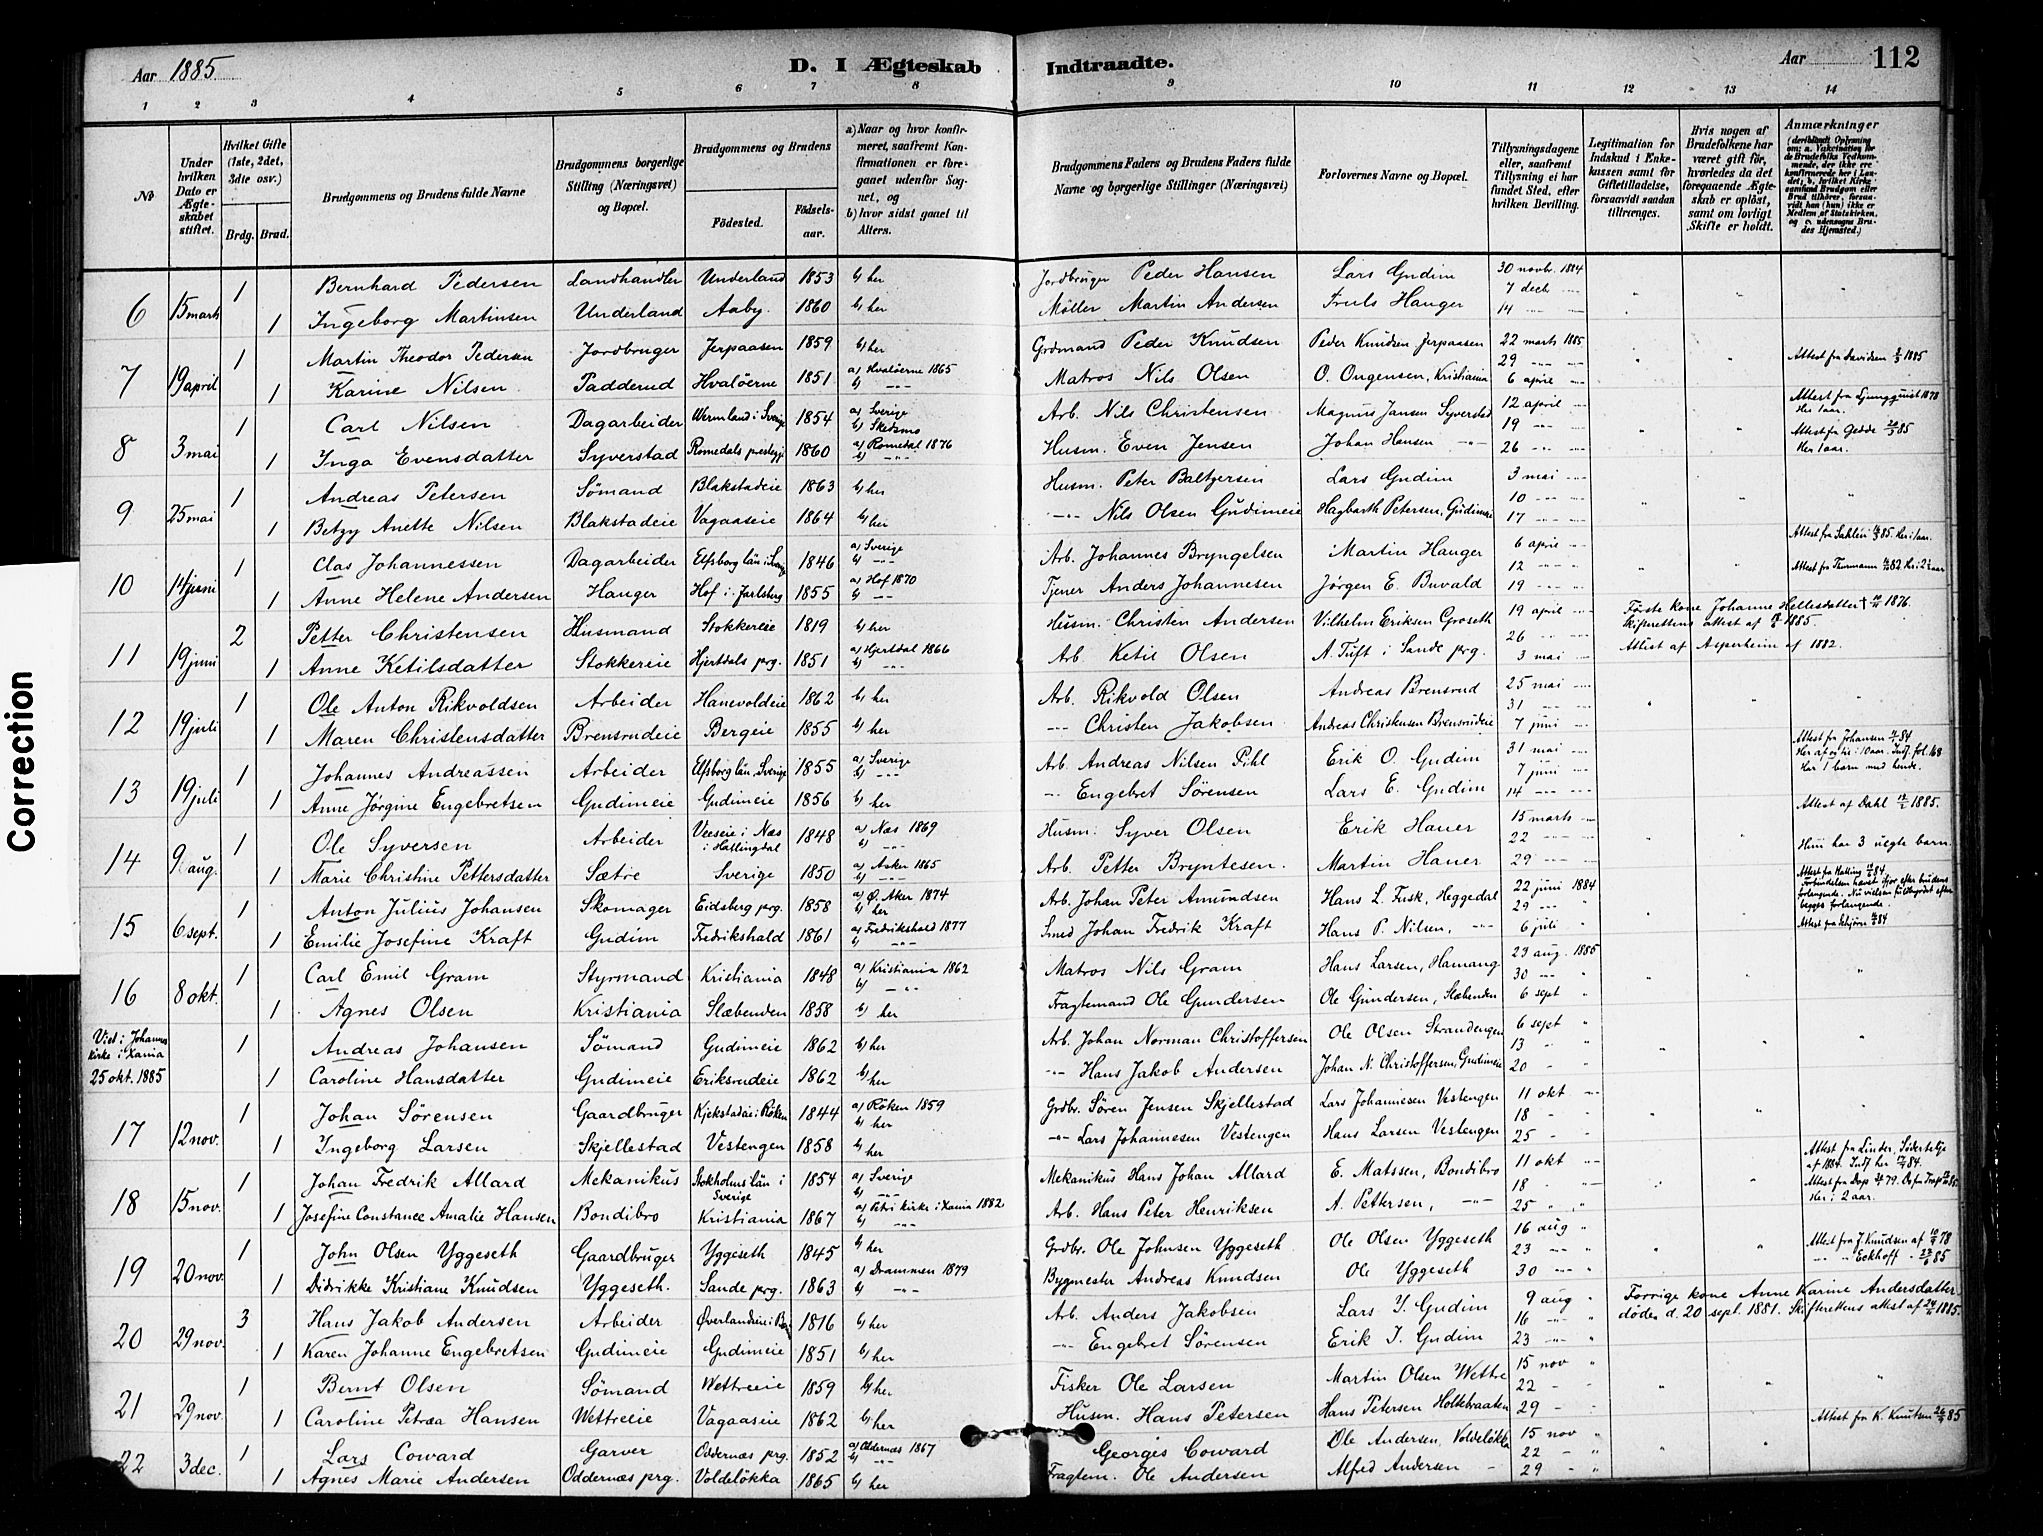 Aar 1885
D. I Ægteskab Indtraadte.
Aar
112
1 2 3 4 5 6 7 8 9 10 11 12 13 14
No
Under hvilken Dato er Ægteskabet stiftet.
Hvilket Gifte (1ste, 2det, 3die osv.)
Brdg. Brud.
Brudgommens og Brudens fulde Navne
Brudgommens borgerlige Stilling (Næringsvei) og Bopæl.
Brudgommens og Brudens
Födested.
Födsels-aar.
a) Naar og hvor konfirmeret, saafremt Konfirmationen er foregaaet udenfor Sognet, og
b) hvor sidst gaaet til Alters.
Brudgommens Faders og Brudens Faders fulde Navne og borgerlige Stillinger (Næringsvei)
Forlovernes Navne og Bopæl.
Tillysningsdagene eller, saafremt Tillysning ei har fundet Sted, efter hvilken Bevilling.
Legitimation for Indskud i Enkekassen samt for Giftetilladelse, forsaavidt saadan tiltrænges.
Hvis nogen af Brudefolkene har været gift för, hvorledes da det foregaaende Ægteskab er oplöst, samt om lovligt Skifte er holdt.
Anmærkninger
(deriblandt Oplysning om: a. Vaccination for de Brudefolks Vedkommende, der ikke ere konfirmerede her i Landet; b. hvilket Kirkesamfund Brudgom eller Brud tilhörer, forsaavidt han (hun) ikke er Medlem af Statskirken, og c. udensogns Brudes Hjemsted.)
6 15 marts 1 Bernhard Pedersen Landhandler Underland 1853 b) her Jordbruger Peder Hansen Lars Gudim 30 novbr. 1884
7 dech
1 Ingeborg Martinsen Underland Aaby. 1860 b) her Møller Martin Andersen Truls Hauger 14
7 19 april 1 Martin Theodor Pedersen Jordbruger Jerpaasen 1859 b) her Grdmand Peder Knudsen Peder Knudsen Jerpaasen 22 marts 1885 Attest fra Davidsen 1885
29
1 Karine Nilsen Padderud Hvaløerne 1851 a) Hvaløerne 1865 b) -"- Matros Nils Olsen O. Ongensen, Kristiania 6 april
8 3 mai 1 Carl Nilsen Dagarbeider Wermland i Sverige 1854 a) Sverige b) Skedsmo Arb. Nils Christensen Magnus Jansen Syverstad 12 april Attest fra Ljungquist 1878 Her 1 aar.
19
1 Inga Evensdatter Syverstad Romedals prestegj. 1860 a) Romedal 1876 b) -"- Husm. Even Jensen Johan Hansen -"- 26 Attest fra Gedde 85 Her 1 aar.
9 25 mai 1 Andreas Petersen Sømand Blakstadeie 1863 b) her Husm. Peter Baltzersen Lars Gudim 3 mai
10
1 Betzy Anette Nilsen Blakstadeie Vagaaseie 1864 b) her -"- Nils Olsen Gudimeie Hagbarth Petersen, Gudimeie 17
10 14 juni 1 Clas Johannessen Dagarbeider Elfsborg län i Sverige 1846 a) Sverige b) -"- Arb. Johannes Bryngelsen Martin Hauger 6 april Attest fra Sahlén 85. Her 1 aar.
12
1 Anne Helene Andersen Hauger Hof i Jarlsberg 1855 a) Hof 1870 b) -"- Tjener Anders Johannesen Jørgen E. Buvald 19 Attest fra Thurmann 82 Her 2½ aar
11 19 juni 2 Petter Christensen Husmand Stokkereie 1819 b) her Husm. Christen Andersen Vilhelm Eriksen Groseth 19 april Første kone Johanne Hellesdatter † 1876. Skifterettens attest af 1885
26
1 Anne Ketilsdatter Stokkereie Hjertdals prg. 1851 a) Hjertdal 1866 b) -"- Arb. Ketil Olsen A. Tuft i Sande prg. 3 mai Attest af Asperheim af 1882.
12 19 juli 1 Ole Anton Rikvoldsen Arbeider Hanevoldeie 1862 b) her Arb. Rikvold Olsen Andreas Brensrud 25 mai
31
1 Maren Christensdatter Brensrudeie Bergeie 1855 b) her -"- Christen Jakobsen Andreas Christensen Brensrudeie 7 juni
13 19 juli 1 Johannes Andreassen Arbeider Elfsborg län, Sverige 1855 a) Sverige b) -"- Arb. Andreas Nilsen Pihl Erik O. Gudim 31 mai Attest fra Johansen 84 Her af og til i 10 aar. Indf. fol. 168 Har 1 barn med hende.
7 juni
1 Anne Jørgine Engebretsen Gudimeie Gudimeie 1856 b) her -"- Engebret Sørensen Lars E. Gudim 14
14 9 aug. 1 Ole Syversen Arbeider Veeseie i Næs i Hallingdal 1848 a) Næs 1869 b) -"- Husm. Syver Olsen Erik Hauer 15 marts Attest af Dahl 1885.
22
1 Marie Christine Pettersdatter Sætre Sverige 1850 a) Asker 1865 b) -"- Arb. Petter Bryntesen. Martin Hauer 29 Hun har 3 uegte barn.
15 6 sept. 1 Anton Julius Johansen Skomager Eidsberg prg. 1858 a) Ø. Aker 1874 b) her Arb. Johan Peter Amundsen Hans L. Fusk, Heggedal 22 juni 1884 Attest fra Halling 84. Forbindelsen hævet ifjor efter brudens forlangende. Nu vielsen fuldbyrdet efter begges forlangende.
29
1 Emilie Josefine Kraft Gudim Fredrikshald 1861 a) Fredrikshald 1877 b) -"- Smed Johan Fredrik Kraft Hans P. Nilsen, -"- 6 juli
16 8 okt. 1 Carl Emil Gram Styrmand Kristiania 1848 a) Kristiania 1862 b) -"- Matros Nils Gram Hans Larsen, Hamang 23 aug. 1885
30
1 Agnes Olsen Kristiania Slæbenden 1858 b) her Fragtemand Ole Gundersen Ole Gundersen, Slæbenden 6 sept
Viet i Johannes kirke i Xania 25 okt. 1885 1 Andreas Johansen Sømand Gudimeie 1862 b) her Arb. Johan Norman Christoffersen Ole Olsen Strandengen 6 sept
13
1 Caroline Hansdatter Gudimeie Eriksrudeie 1862 b) her -"- Hans Jakob Andersen Johan N. Christoffersen, Gudimeie 20
17 12 nov. 1 Johan Sørensen Gaardbruger Kjekstadeie i Røken 1844 a) Røken 1859 b) her Grdbr. Søren Jensen Skjellestad Lars Johannesen Vestengen 11 okt
18
1 Ingeborg Larsen Skjellestad Vestengen 1858 b) her -"- Lars Johannesen Vestengen Hans Larsen Vestengen 25
18 15 nov. 1 Johan Fredrik Allard Mekanikus Stokholms län i Sverige 1854 a) Sverige b) -"- Mekanikus Hans Johan Allard E. Matssen, Bondibro 11 okt Attest fra Linder, Södertelje af 1884. Indf her 84.
18
1 Josefine Constance Amalie Hansen Bondibro Kristiania 1867 a) Petri kirke i Xania 1882 b) -"- Arb. Hans Peter Henriksen A. Pettersen, -"- 25 Her i 2 aar.
19 20 nov. 1 John Olsen Yggeseth Gaardbruger Yggeseth 1845 b) her Grdbr. Ole Johnsen Yggeseth Ole Olsen Yggeseth 16 aug Attest fra J Knudsen af 78
23
1 Didrikke Kristiane Knudsen Yggeseth. Sande prg. 1863 a) Drammen 1879 b) -"- Bygmester Andreas Knudsen Ole Yggeseth 30 -"- Eckhoff 85
20 29 nov. 3 Hans Jakob Andersen Arbeider 1816 b) her Arb. Anders Jakobsen Lars I. Gudim 9 aug Forrige kone Anne Karine Andersdatter døde d. 20 sept. 1881. Skifterettens attest af 1885.
16
1 Karen Johanne Engebretsen Gudimeie Gudimeie 1851 b) her -"- Engebret Sørensen Erik I. Gudim 23
21 29 nov. 1 Bernt Olsen Sømand Wettreeie 1859 b) her Fisker Ole Larsen Martin Olsen Wettre 15 nov
22
1 Caroline Petræa Hansen Wettreeie Vagaaseie 1862 b) her Husm. Hans Petersen Hans Petersen Holtebraaten 29
22 3 dec. 1 Lars Coward Garver Oddernæs prg. 1852 a) Oddernæs 1867 b) -"- Georgis Coward Ole Andersen, Voldeløkka 15 nov Attest fra K. Knutsen 85
22
1 Agnes Marie Andersen Oddernæs prg. Voldeløkka 1865 b) her Fragtem. Ole Andersen Alfred Andersen 29
Correction